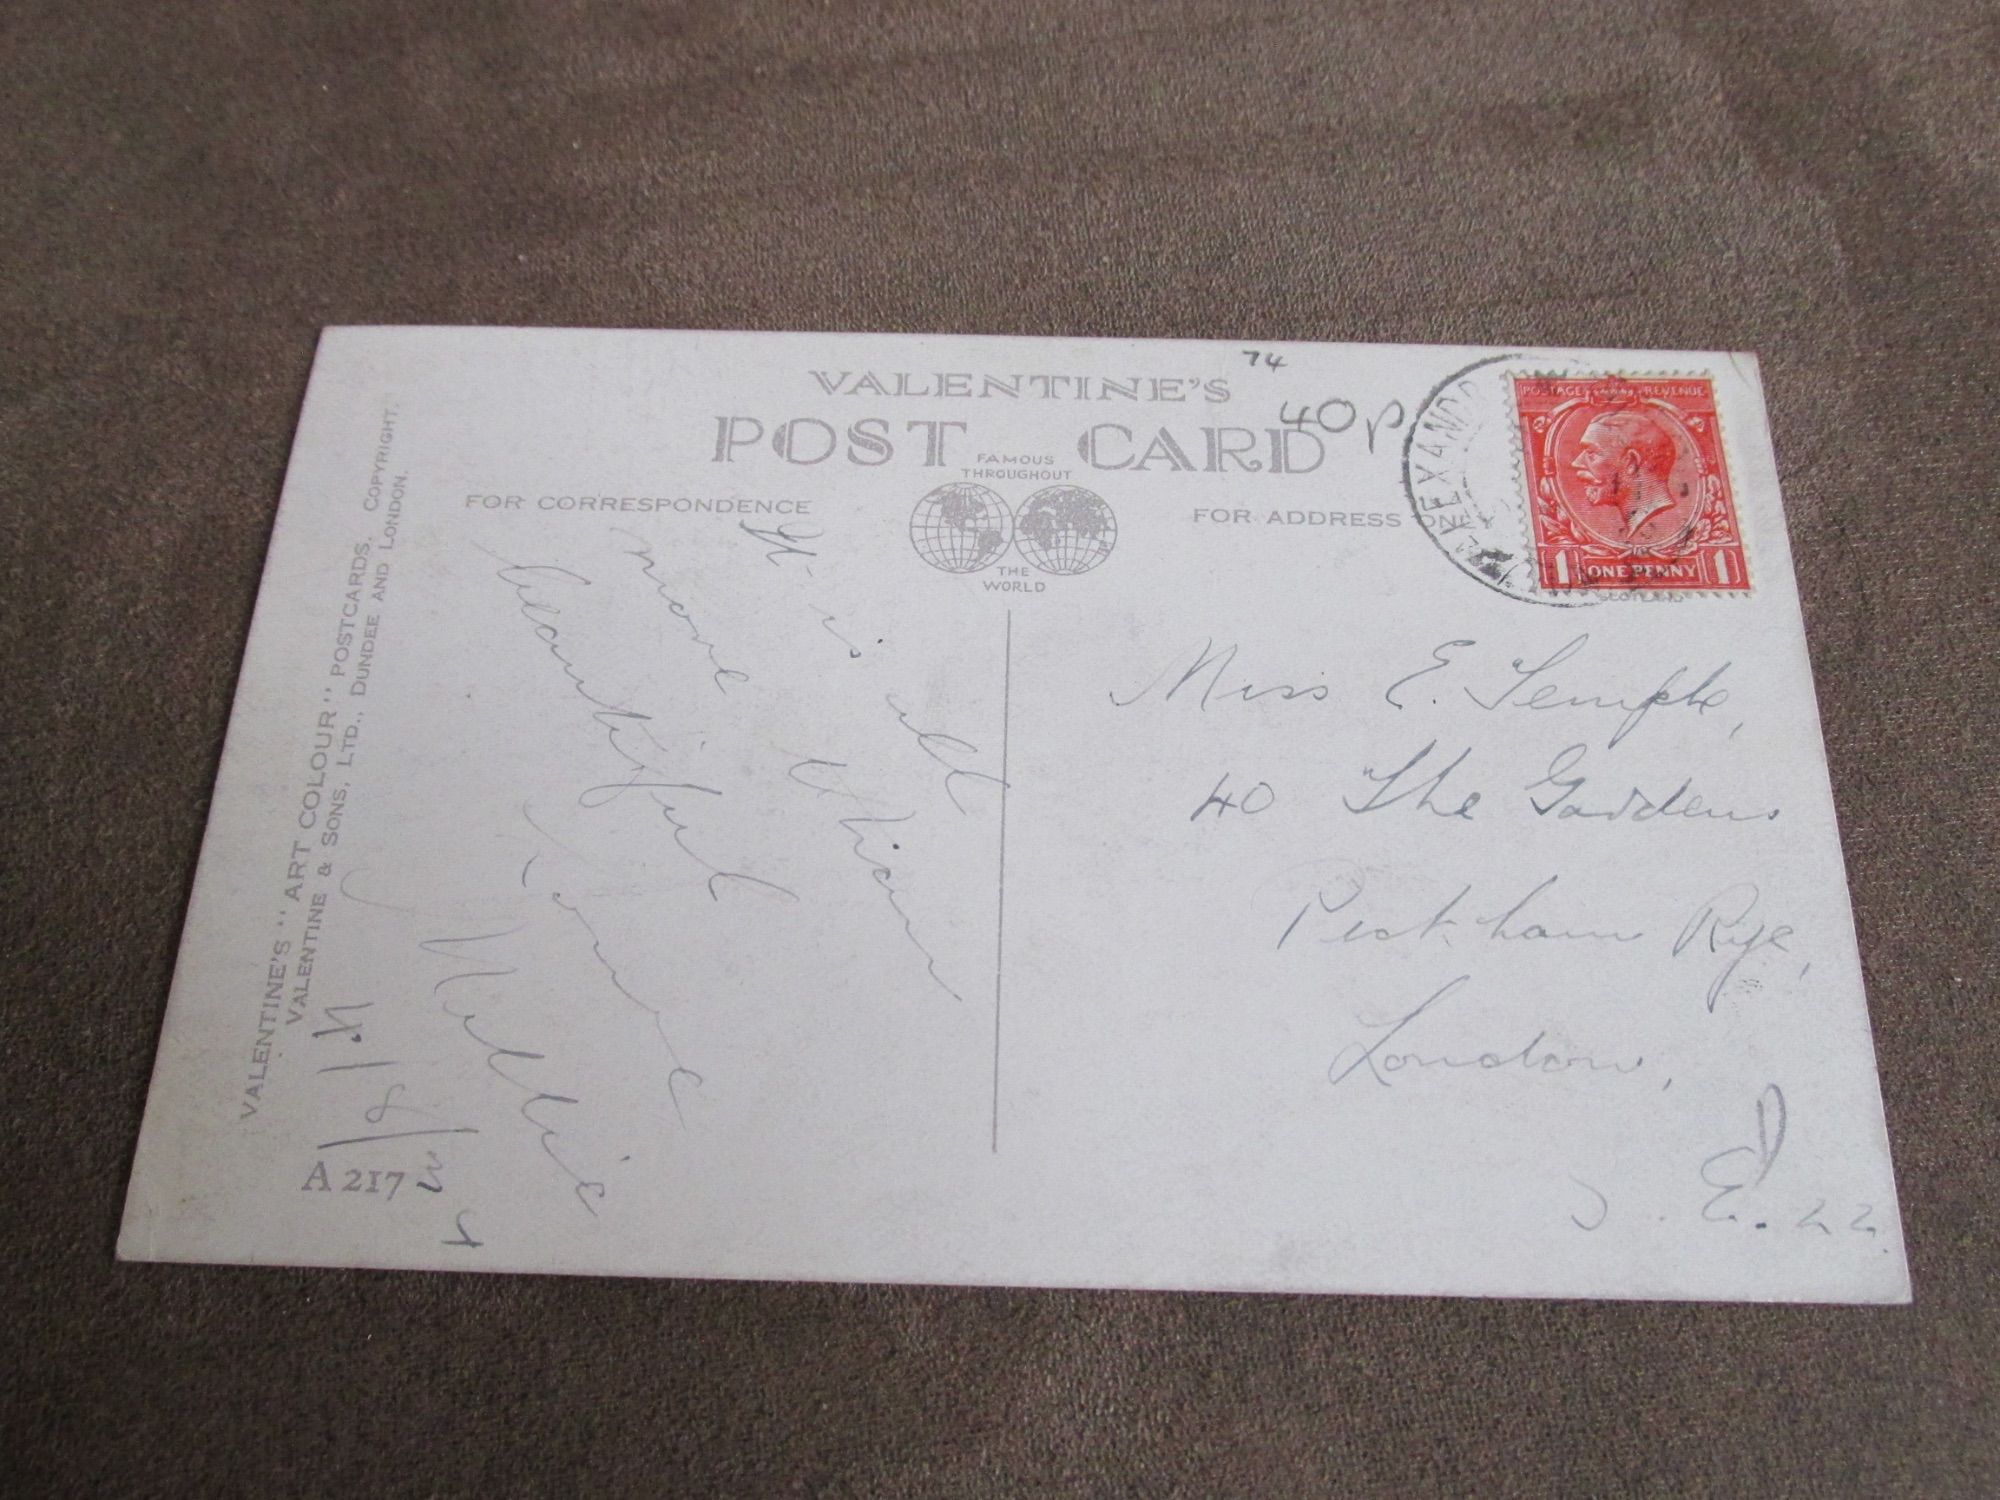 VALENTINE'S
POST CARD
FAMOUS
THROUGHOUT
THE
WORLD
74
40p
FOR CORRESPONDENCE
FOR ADDRESS ONLY
POSTAGE REVENUE
1 ONE PENNY 1
SCOTLAND
It is all
more than
beautiful
Love
Nellie
Miss E. Temple,
40 The Gardens
Peckham Rye,
London,
S.E. 22.
VALENTINE'S "ART COLOUR" POSTCARDS. COPYRIGHT.
VALENTINE & SONS, LTD., DUNDEE AND LONDON.
A 217